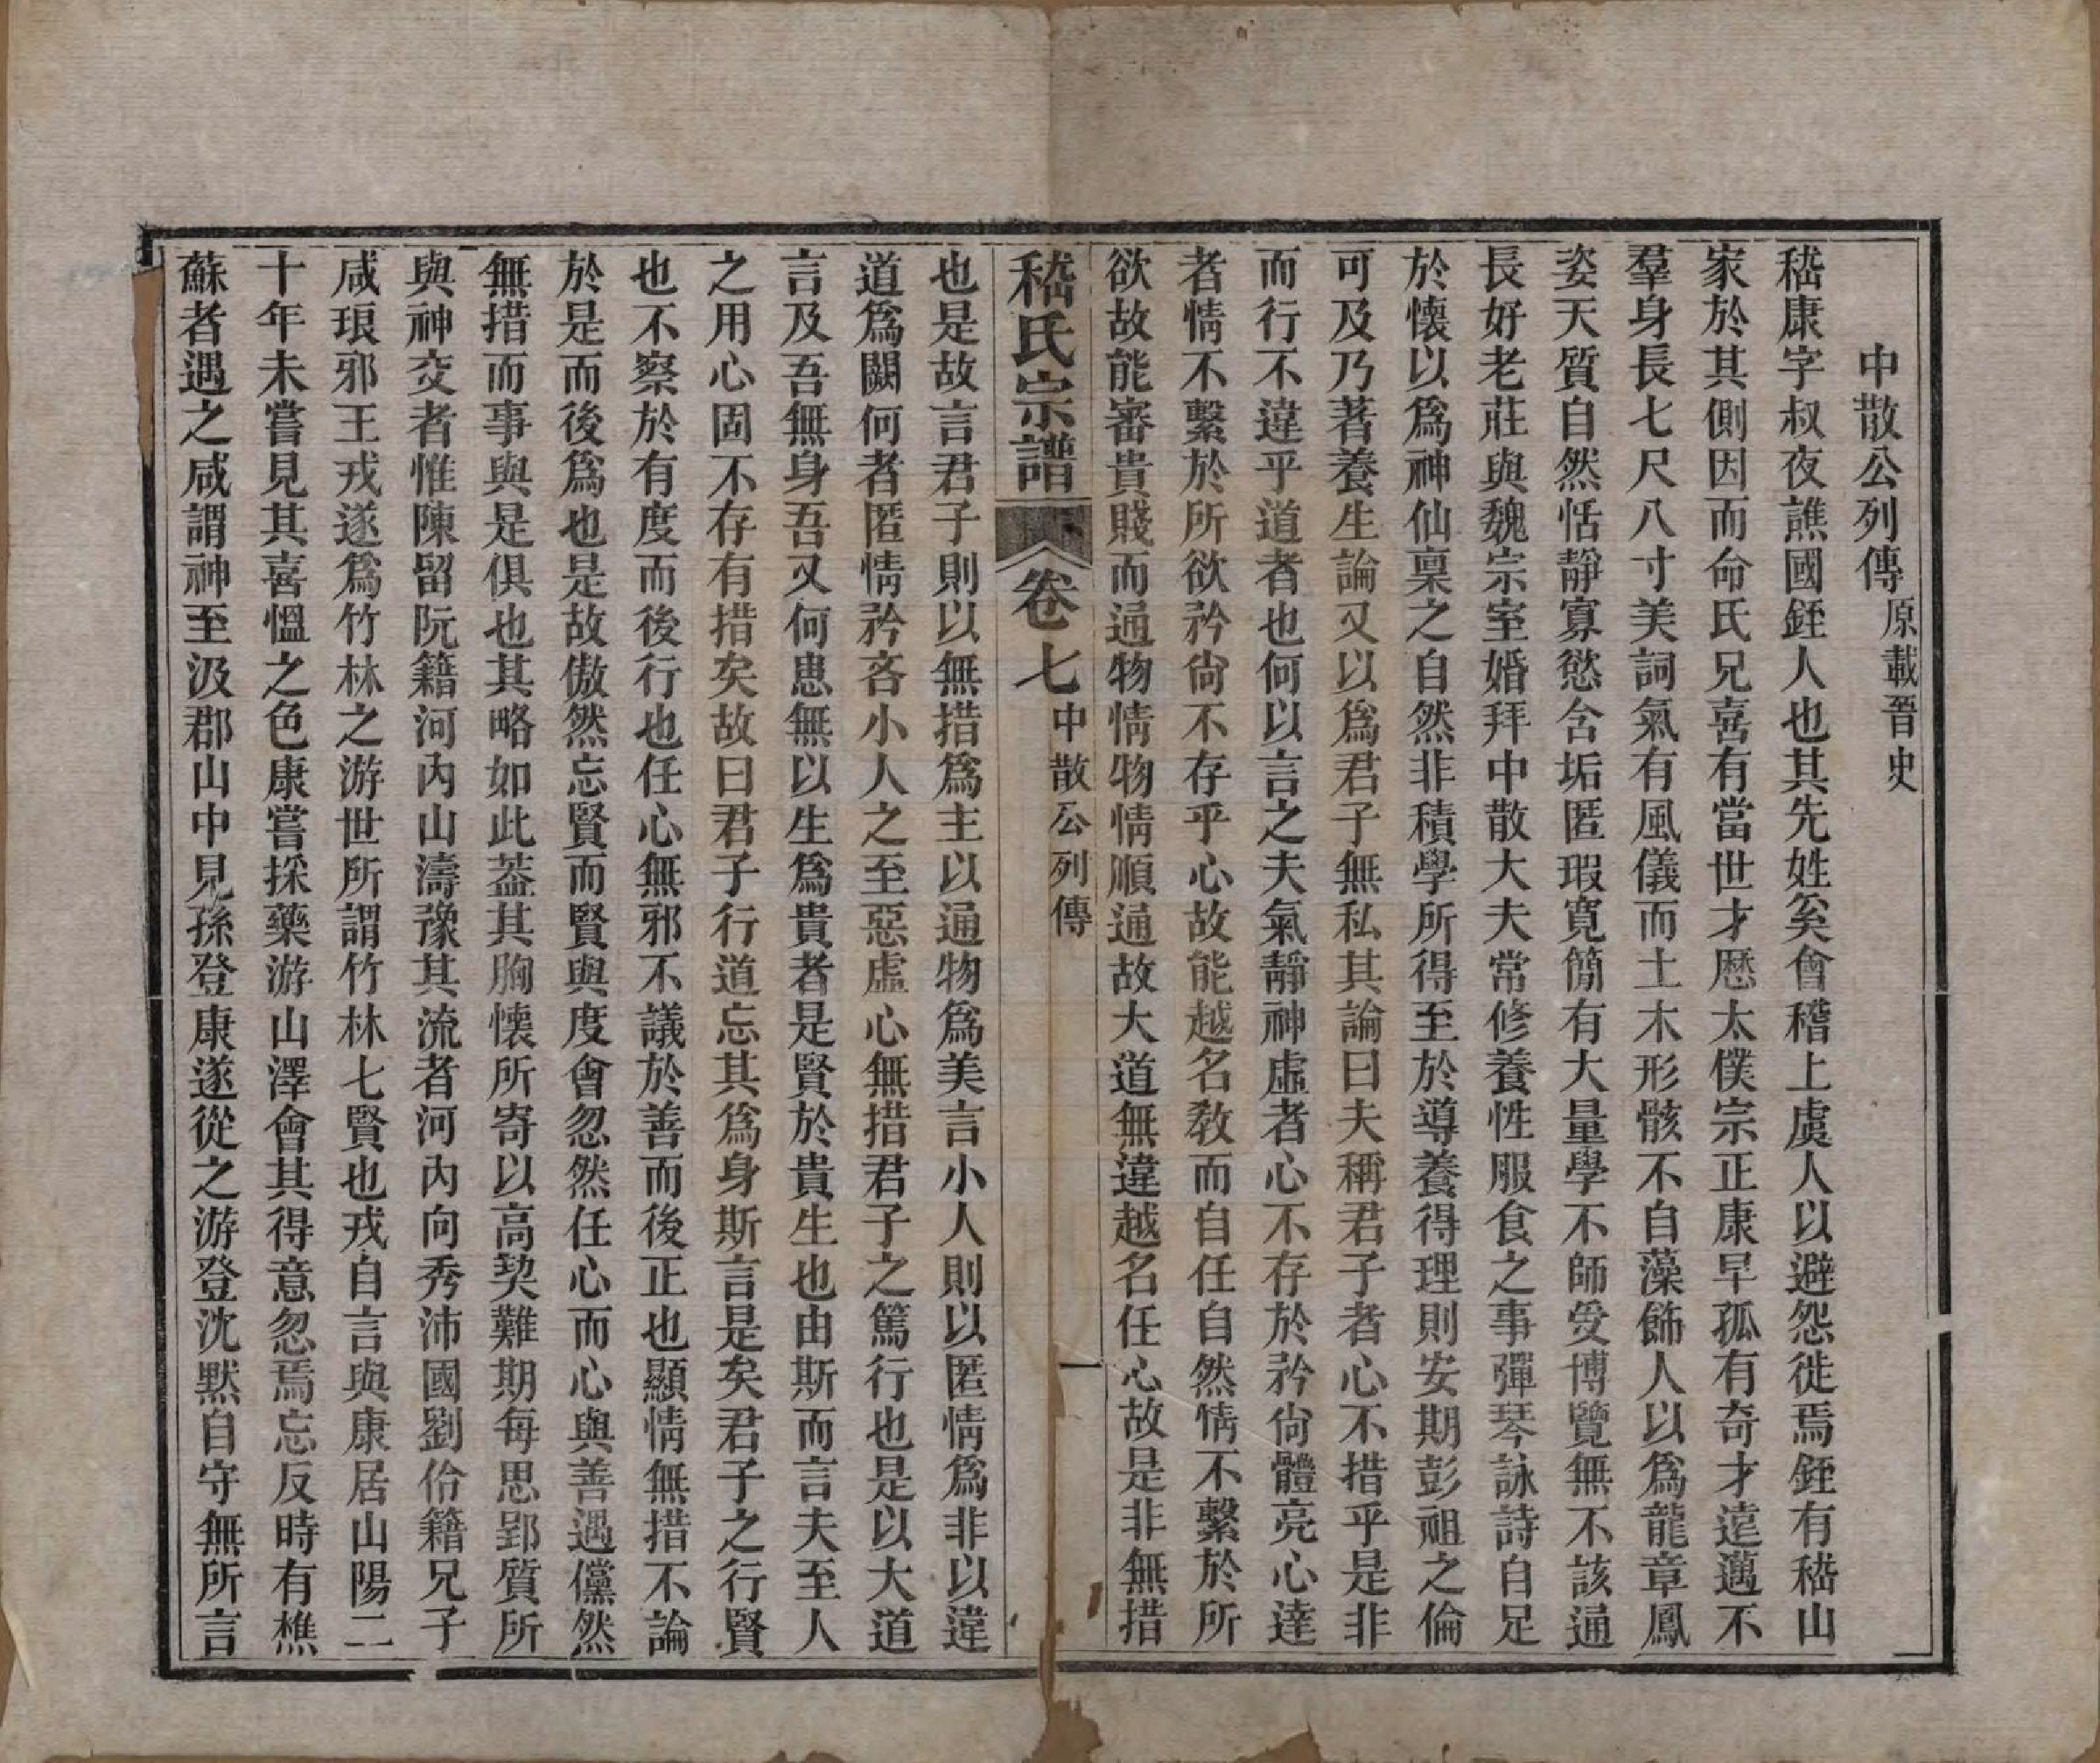 中散公列傳原載晉史
嵇康字叔夜譙國銍人也其先姓奚會稽上虞人以避怨徙焉銍有嵇山
家於其側因而命氏兄喜有當世才歷太僕宗正康早孤有奇才遠邁不
羣身長七尺八寸美詞氣有風儀而土木形骸不自藻飾人以爲龍章鳳
姿天質自然恬靜寡慾含垢匿瑕寬簡有大量學不師受博覽無不該通
長好老莊與魏宗室婚拜中散大夫常修養性服食之事彈琴詠詩自足
於懷以爲神仙稟之自然非積學所得至於導養得理則安期彭祖之倫
可及乃著養生論又以爲君子無私其論曰夫稱君子者心不措乎是非
而行不違乎道者也何以言之夫氣靜神虛者心不存於矜尙體亮心達
者情不繫於所欲矜尙不存乎心故能越名教而自任自然情不繫於所
欲故能審貴賤而通物情物情順通故大道無違越名任心故是非無措
嵇氏宗譜 卷七 中散公列傳 一
也是故言君子則以無措爲主以通物爲美言小人則以匿情爲非以違
道爲闕何者匿情矜吝小人之至惡虛心無措君子之篤行也是以大道
言及吾無身吾又何患無以生爲貴者是賢於貴生也由斯而言夫至人
之用心固不存有措矣故曰君子行道忘其爲身斯言是矣君子之行賢
也不察於有度而後行也任心無邪不議於善而後正也顯情無措不論
於是而後爲也是故傲然忘賢而賢與度會忽然任心而心與善遇儻然
無措而事與是俱也其略如此蓋其胸懷所寄以高契難期每思郢質所
與神交者惟陳留阮籍河內山濤豫其流者河內向秀沛國劉伶籍兄子
咸琅邪王戎遂爲竹林之游世所謂竹林七賢也戎自言與康居山陽二
十年未嘗見其喜慍之色康嘗採藥游山澤會其得意忽焉忘反時有樵
蘇者遇之咸謂神至汲郡山中見孫登康遂從之游登沈默自守無所言